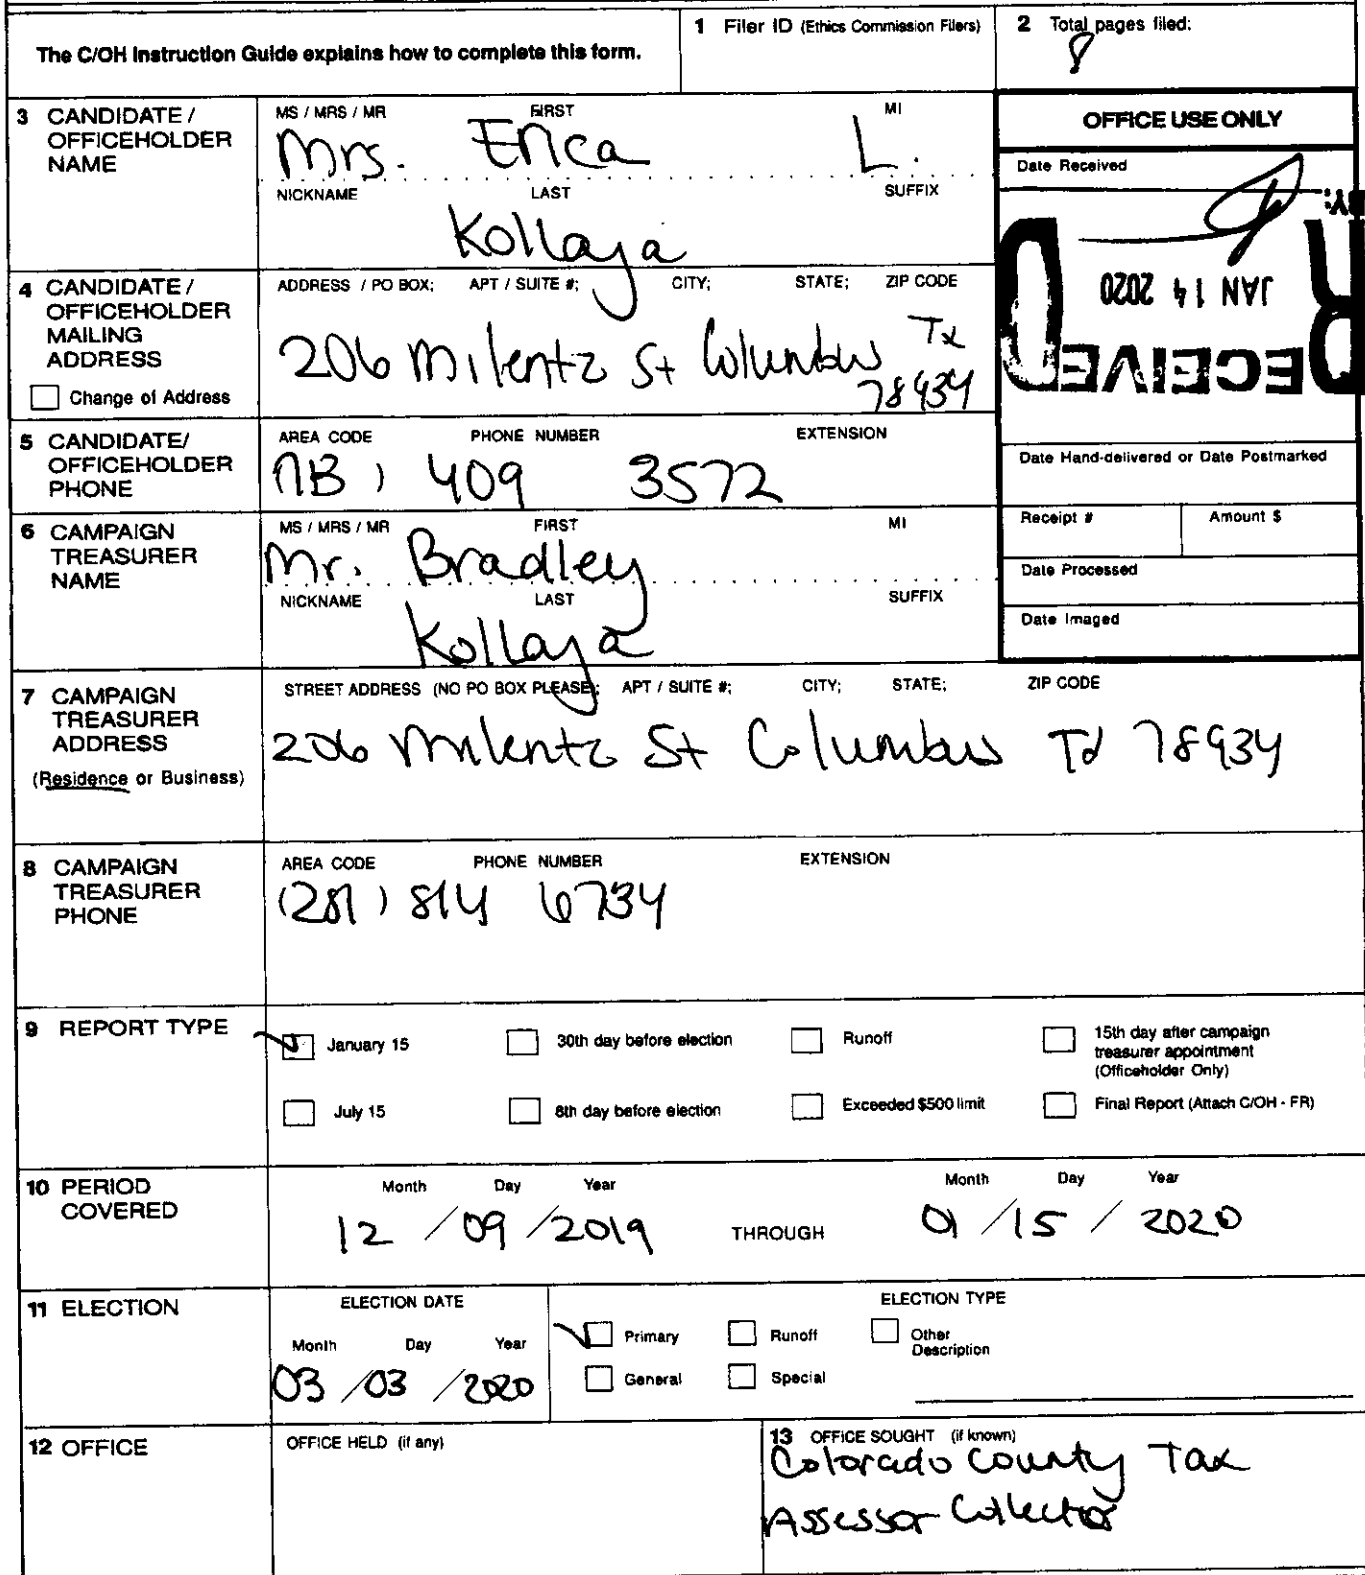 The C/OH Instruction Guide explains how to complete this form.
1 Filer ID (Ethics Commission Filers)
2 Total pages filed:
8
3 CANDIDATE / OFFICEHOLDER NAME
MS / MRS / MR FIRST MI
Mrs. Erica L.
NICKNAME LAST SUFFIX
Kollaja
OFFICE USE ONLY
Date Received
RECEIVED
JAN 14 2020
BY:
4 CANDIDATE / OFFICEHOLDER MAILING ADDRESS
Change of Address
ADDRESS / PO BOX; APT / SUITE #; CITY; STATE; ZIP CODE
206 Milentz St Columbus Tx
78934
5 CANDIDATE/ OFFICEHOLDER PHONE
AREA CODE PHONE NUMBER EXTENSION
409 3572
Date Hand-delivered or Date Postmarked
Receipt # Amount $
Date Processed
Date Imaged
6 CAMPAIGN TREASURER NAME
MS / MRS / MR FIRST MI
Mr. Bradley
NICKNAME LAST SUFFIX
Kollaja
7 CAMPAIGN TREASURER ADDRESS
(Residence or Business)
STREET ADDRESS (NO PO BOX PLEASE); APT / SUITE #; CITY; STATE; ZIP CODE
206 Milentz St Columbus TX 78934
8 CAMPAIGN TREASURER PHONE
AREA CODE PHONE NUMBER EXTENSION
(281) 814 6734
9 REPORT TYPE
January 15 30th day before election Runoff 15th day after campaign treasurer appointment (Officeholder Only)
July 15 8th day before election Exceeded $500 limit Final Report (Attach C/OH - FR)
10 PERIOD COVERED
Month Day Year Month Day Year
12 / 09 / 2019 THROUGH 01 / 15 / 2020
11 ELECTION
ELECTION DATE
Month Day Year
03 / 03 / 2020
ELECTION TYPE
Primary Runoff Other Description
General Special
12 OFFICE
OFFICE HELD (if any)
13 OFFICE SOUGHT (if known)
Colorado County Tax
Assessor Collector